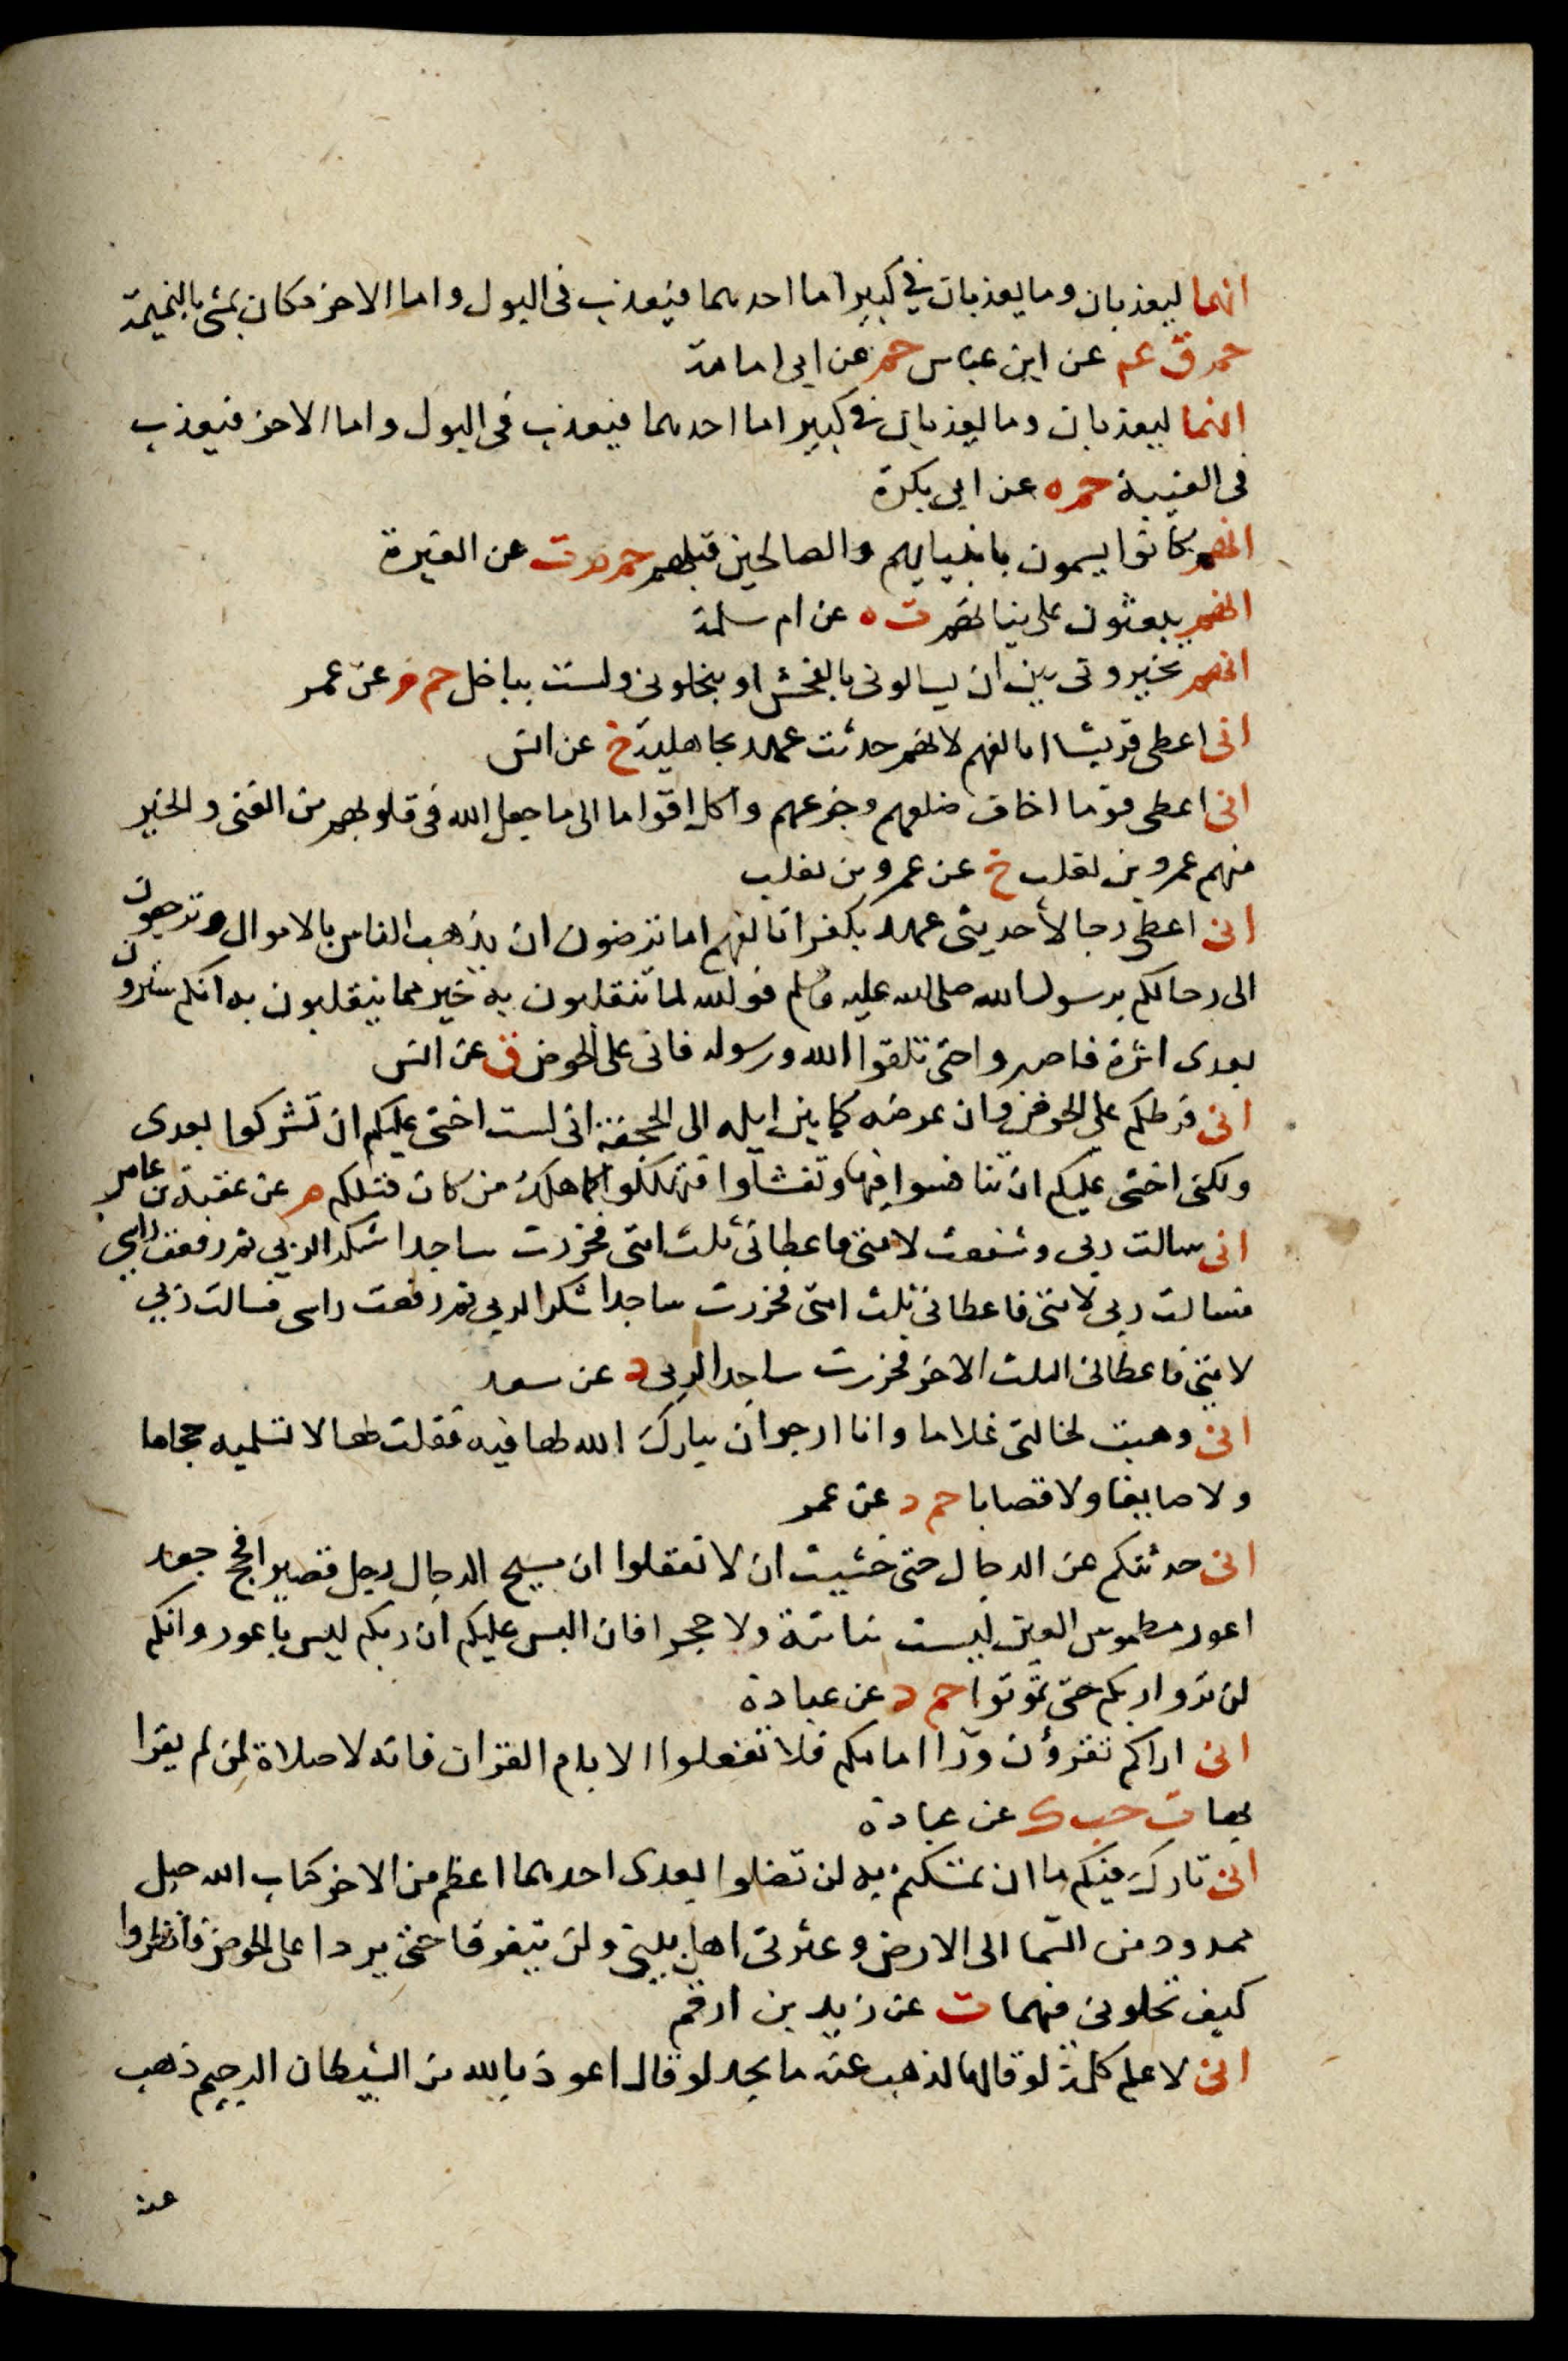 انهما ليعذبان وما يعذبان في كبير اما احدهما فيعذب فى البول واما الاخر فكان يمشى بالنميمة
حم ق عم عن ابن عباس حم عن ابى امامة
انهما ليعذبان وما يعذبان فى كبير اما احدهما فيعذب فى البول واما الاخر فيعذب
فى الغيبة حم ه عن ابى بكرة
انهم كانوا يسمون بانبيايهم والصالحين قبلهم حم م ت عن المغيرة
انهم يبعثون على نياتهم ت ه عن ام سلمة
انهم يخيرونى بين ان يسالونى بالفحش او يبخلونى ولست بباخل حم م عن عمر
انى اعطى قريشا اتالفهم لانهم حدثت عهد بجاهلية خ عن انس
انى اعطى قوما اخاف ضلعهم وجزعهم واكل اقواما الى ما جعل الله فى قلوبهم من الغنى والخير
منهم عمرو بن تغلب خ عن عمرو بن تغلب
انى اعطى رجالا حديثى عهد بكفر اتالفهم اما ترضون ان يذهب الناس بالاموال وترجعون
الى رحالكم برسول الله صلى الله عليه وسلم فوالله لما تنقلبون به خير مما ينقلبون به انكم سترون
بعدى اثرة فاصبروا حتى تلقوا الله ورسوله فانى على الحوض ق عن انس
انى فرطكم على الحوض وان عرضه كما بين ايله الى الجحفة انى لست اخشى عليكم ان تشركوا بعدى
ولكنى اخشى عليكم ان تنافسوا فيها وتقتتلوا فتهلكوا كما هلك من كان قبلكم م عن عقبة بن عامر
انى سالت ربى وشفعت لامتى فاعطانى ثلث امتى فخررت ساجدا شكرا لربى ثم رفعت راسى
فسالت ربى لامتى فاعطانى ثلث امتى فخررت ساجدا شكرا لربى ثم رفعت راسى فسالت ربى
لامتى فاعطانى الثلث الاخر فخررت ساجدا لربى د عن سعد
انى وهبت لخالتى غلاما وانا ارجو ان يبارك الله لها فيه فقلت لها لا تسلميه حجاما
ولا صايغا ولا قصابا حم د عن عمر
انى حدثتكم عن الدجال حتى خشيت ان لا تعقلوا ان مسيح الدجال رجل قصير افحج جعد
اعور مطموس العين ليست بناتئة ولا حجرا فان البس عليكم ان ربكم ليس باعور وانكم
لن تروا ربكم حتى تموتوا حم د عن عبادة
انى اراكم تقرؤن ورا امامكم فلا تفعلوا الا بام القران فانه لا صلاة لمن لم يقرا
بها ت حب ك عن عبادة
انى تارك فيكم ما ان تمسكتم به لن تضلوا بعدى احدهما اعظم من الاخر كتاب الله حبل
ممدود من السما الى الارض وعترتى اهل بيتى ولن يتفرقا حتى يردا على الحوض فانظروا
كيف تخلونى فيهما ت عن زيد بن ارقم
انى لاعلم كلمة لو قالها لذهب عنه ما يجد لو قال اعوذ بالله من الشيطان الرجيم ذهب
عنه